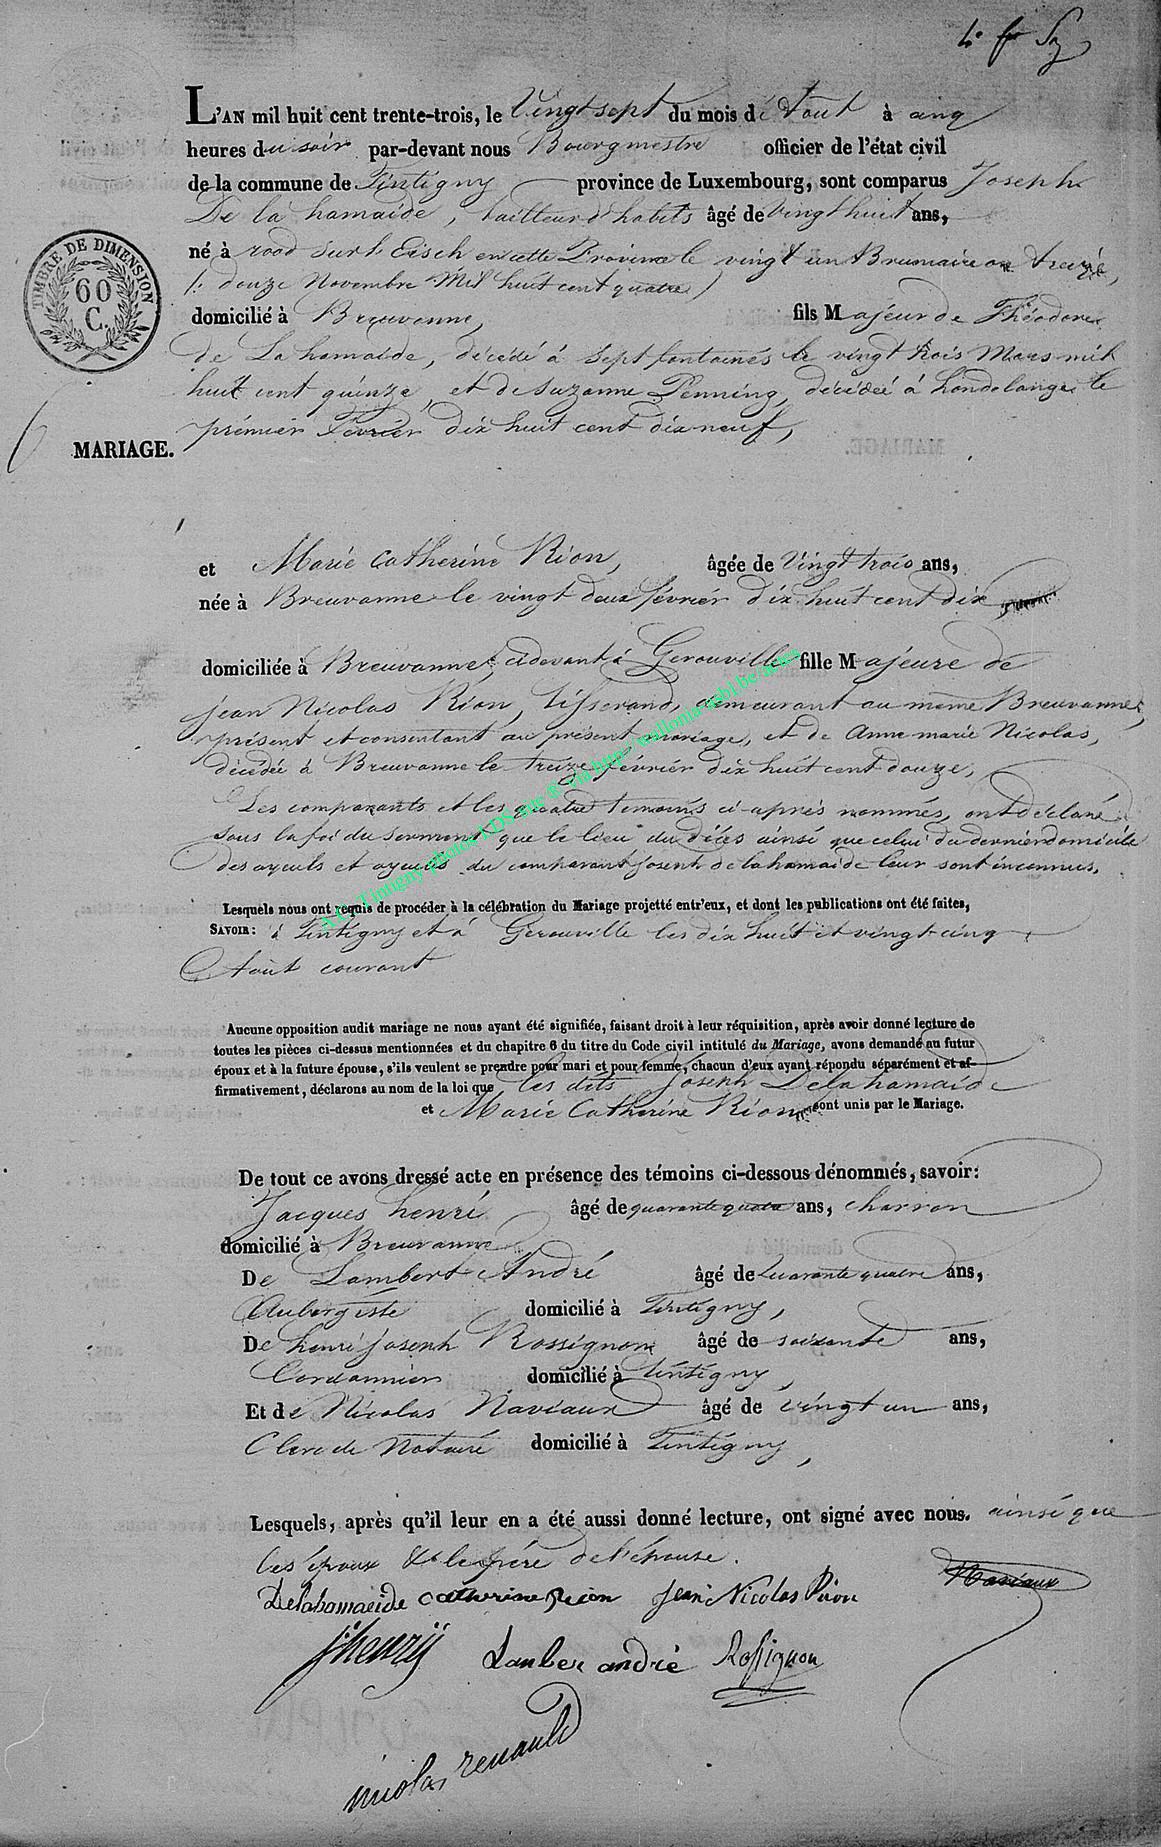 L'AN mil huit cent trente-trois, le Vingt sept du mois d'Aout à cinq
heures du soir par-devant nous Bourgmestre officier de l'état civil
de la commune de Tintigny province de Luxembourg, sont comparus Joseph
De la hamaide, tailleur d'habits âgé de vingt huit ans,
né à rood sur l'Eisch en cette Province le vingt un Brumaire an treize,
(: douze Novembre Mil huit cent quatre)
domicilié à Breuvanne, fils Majeur de Théodore
de La hamaide, décédé à Septfontaines le vingt trois Mars mil
huit cent quinze, et de Suzanne Penning, décédée à hondelange le
premier Fevrier dix huit cent dix neuf,
TIMBRE DE DIMENSION
60
C.
MARIAGE.
et Marie Catherine Rion, âgée de Vingt trois ans,
née à Breuvanne le vingt deux février dix huit cent dix
domiciliée à Breuvanne, cidevant à Gerouville fille Majeure de
jean Nicolas Rion, tisserand, demeurant au même Breuvanne,
présent et consentant au présent mariage, et de Anne marie Nicolas,
décédée à Breuvanne le treize février dix huit cent douze,
Les comparants et les quatre temoins ci-après nommés, ont déclaré
sous la foi du serment que le lieu du décès ainsi que celui du dernier domicile
des ayeuls et ayeules du comparant joseph de la hamaide leur sont inconnus.
A.C. Tintigny photos LDS site & via http://wallonia-asbl.be/actes
Lesquels nous ont requis de procéder à la célébration du Mariage projetté entr'eux, et dont les publications ont été faites,
SAVOIR: à Tintigny et à Gerouville les dix huit et vingt-cinq
Aout courant
Aucune opposition audit mariage ne nous ayant été signifiée, faisant droit à leur réquisition, après avoir donné lecture de
toutes les pièces ci-dessus mentionnées et du chapitre 6 du titre du Code civil intitulé du Mariage, avons demandé au futur
époux et à la future épouse, s'ils veulent se prendre pour mari et pour femme, chacun d'eux ayant répondu séparément et af-
firmativement, déclarons au nom de la loi que les dits Joseph Delahamaide
et Marie Catherine Rion sont unis par le Mariage.
De tout ce avons dressé acte en présence des témoins ci-dessous dénommés, savoir:
Jacques henri âgé de quarante quatre ans, charron
domicilié à Breuvanne
De Lambert André âgé de Quarante quatre ans,
Aubergiste domicilié à Tintigny,
De henri joseph Rossignon âgé de soixante ans,
Cordonnier domicilié à Tintigny,
Et de Nicolas Naviaux âgé de vingt un ans,
Clerc de Notaire domicilié à Tintigny,
Lesquels, après qu'il leur en a été aussi donné lecture, ont signé avec nous. ainsi que
les époux & le père de l'épouse.
Delahamaide Catherine Rion Jean Nicolas Rion Naviaux
jhenrij Lamber andré Rossignon
nicolas renauld